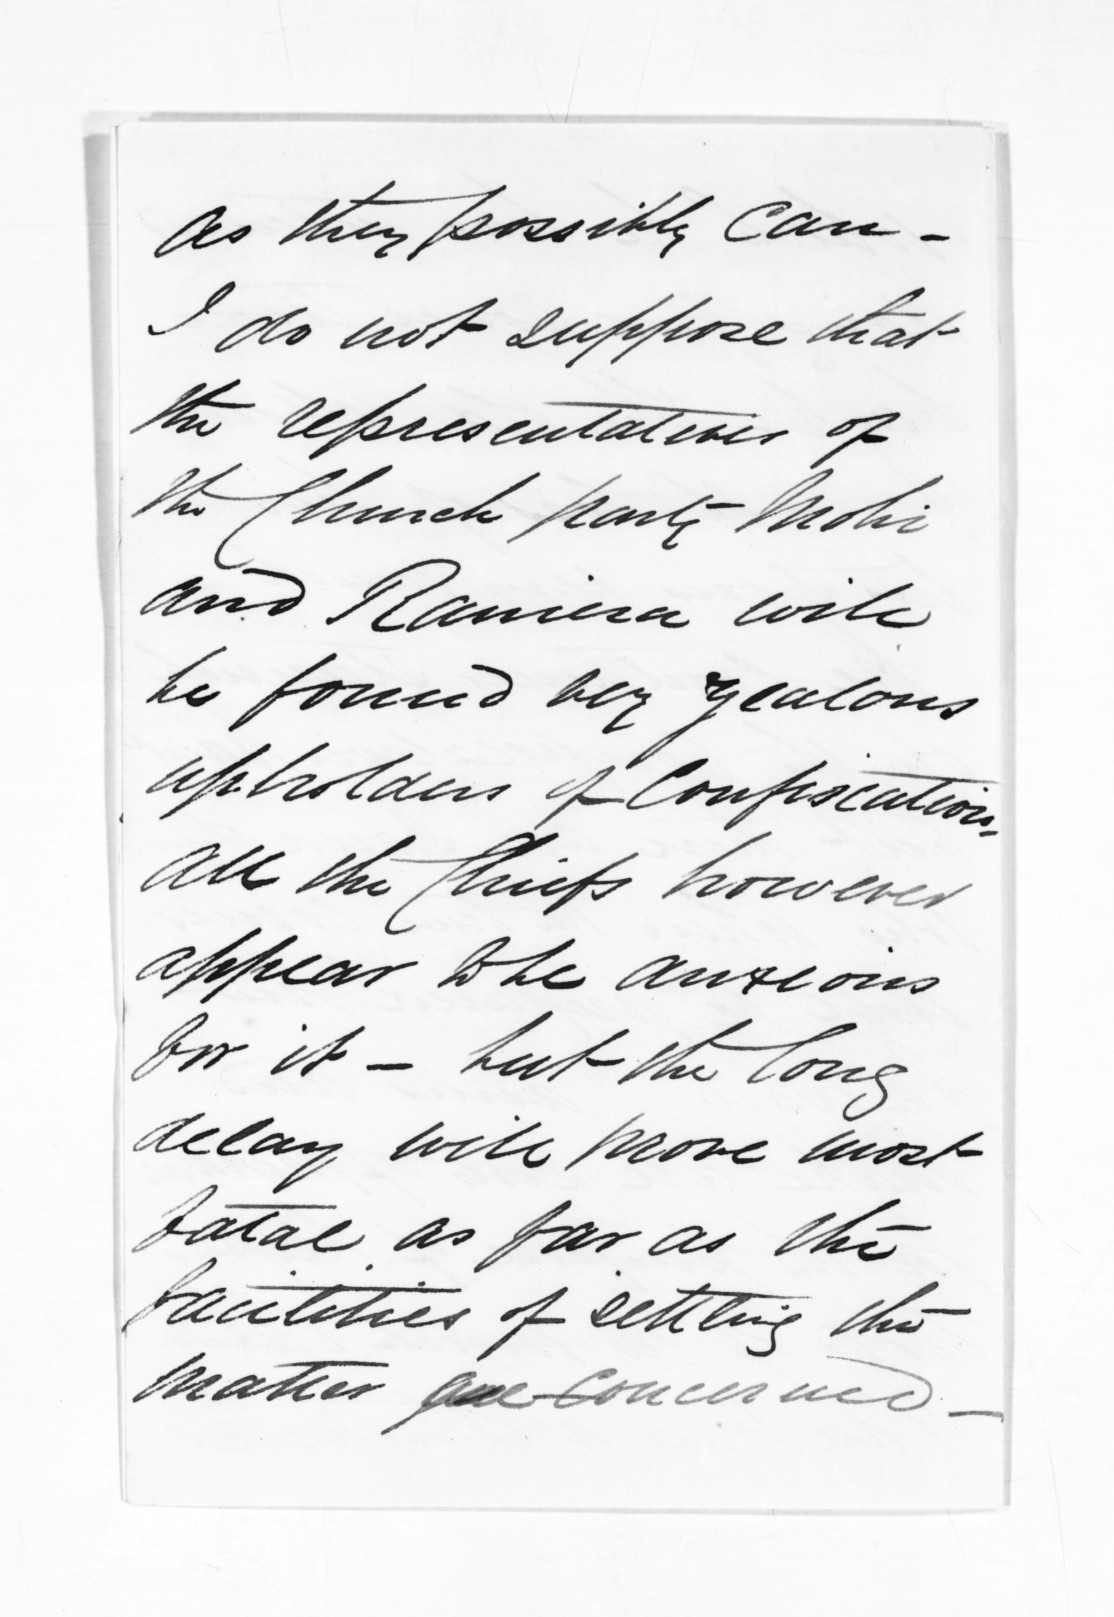 as they possibly can -
I do not suppose that
the representatives of
the Church party Mohi
and Raniera will
be found very zealous
upholders of Confiscation.
all the Chiefs however
appear to be anxious
for it - but the long
delay will prove most
fatal as far as the
facilities of settling the
matter are concerned -